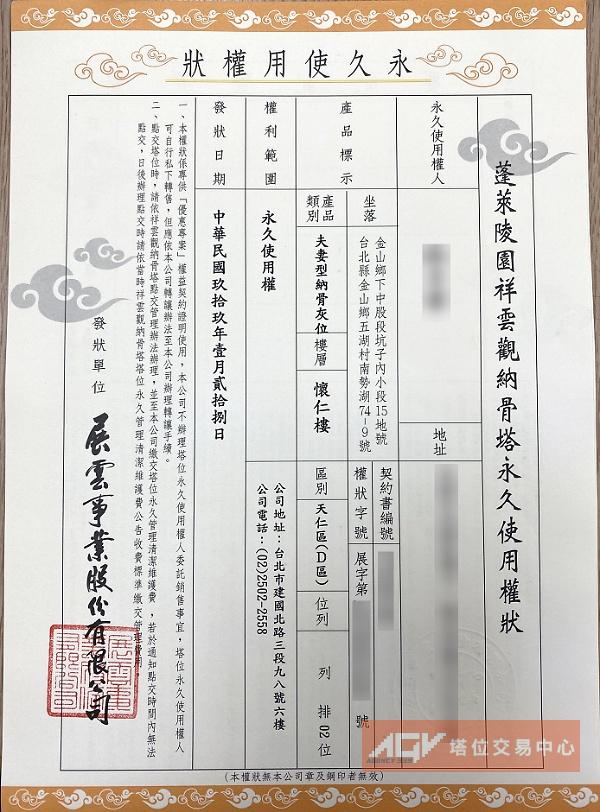 永久使用權狀
蓬萊陵園祥雲觀納骨塔永久使用權狀
永久使用權人
地址
產品標示
坐落
金山鄉下中股段坑子內小段15地號
台北縣金山鄉五湖村南勢湖74-9號
契約書編號
權狀字號
展字第
號
產品類別
夫妻型納骨灰位
樓層
懷仁樓
區別
天仁區(D區)
位列
列 排02位
權利範圍
永久使用權
公司地址：台北市建國北路三段九八號六樓
公司電話：(02)2502-2558
發狀日期
中華民國玖拾玖年壹月貳拾捌日
一、本權狀係專供「優惠專案」權益契約證明使用，本公司不辦理塔位永久使用權人委託銷售事宜，塔位永久使用權人
可自行私下轉售，但應依本公司轉讓辦法至本公司辦理轉讓手續。
二、點交塔位時，請依祥雲觀納骨塔點交管理辦法辦理，並至本公司繳交塔位永久管理清潔維護費，若於通知點交時間內無法
點交，日後辦理點交時請依當時祥雲觀納骨塔塔位永久管理清潔維護費公告收費標準繳交管理費用。
發狀單位
展雲事業股份有限公司
(本權狀無本公司章及鋼印者無效)
AGV 塔位交易中心